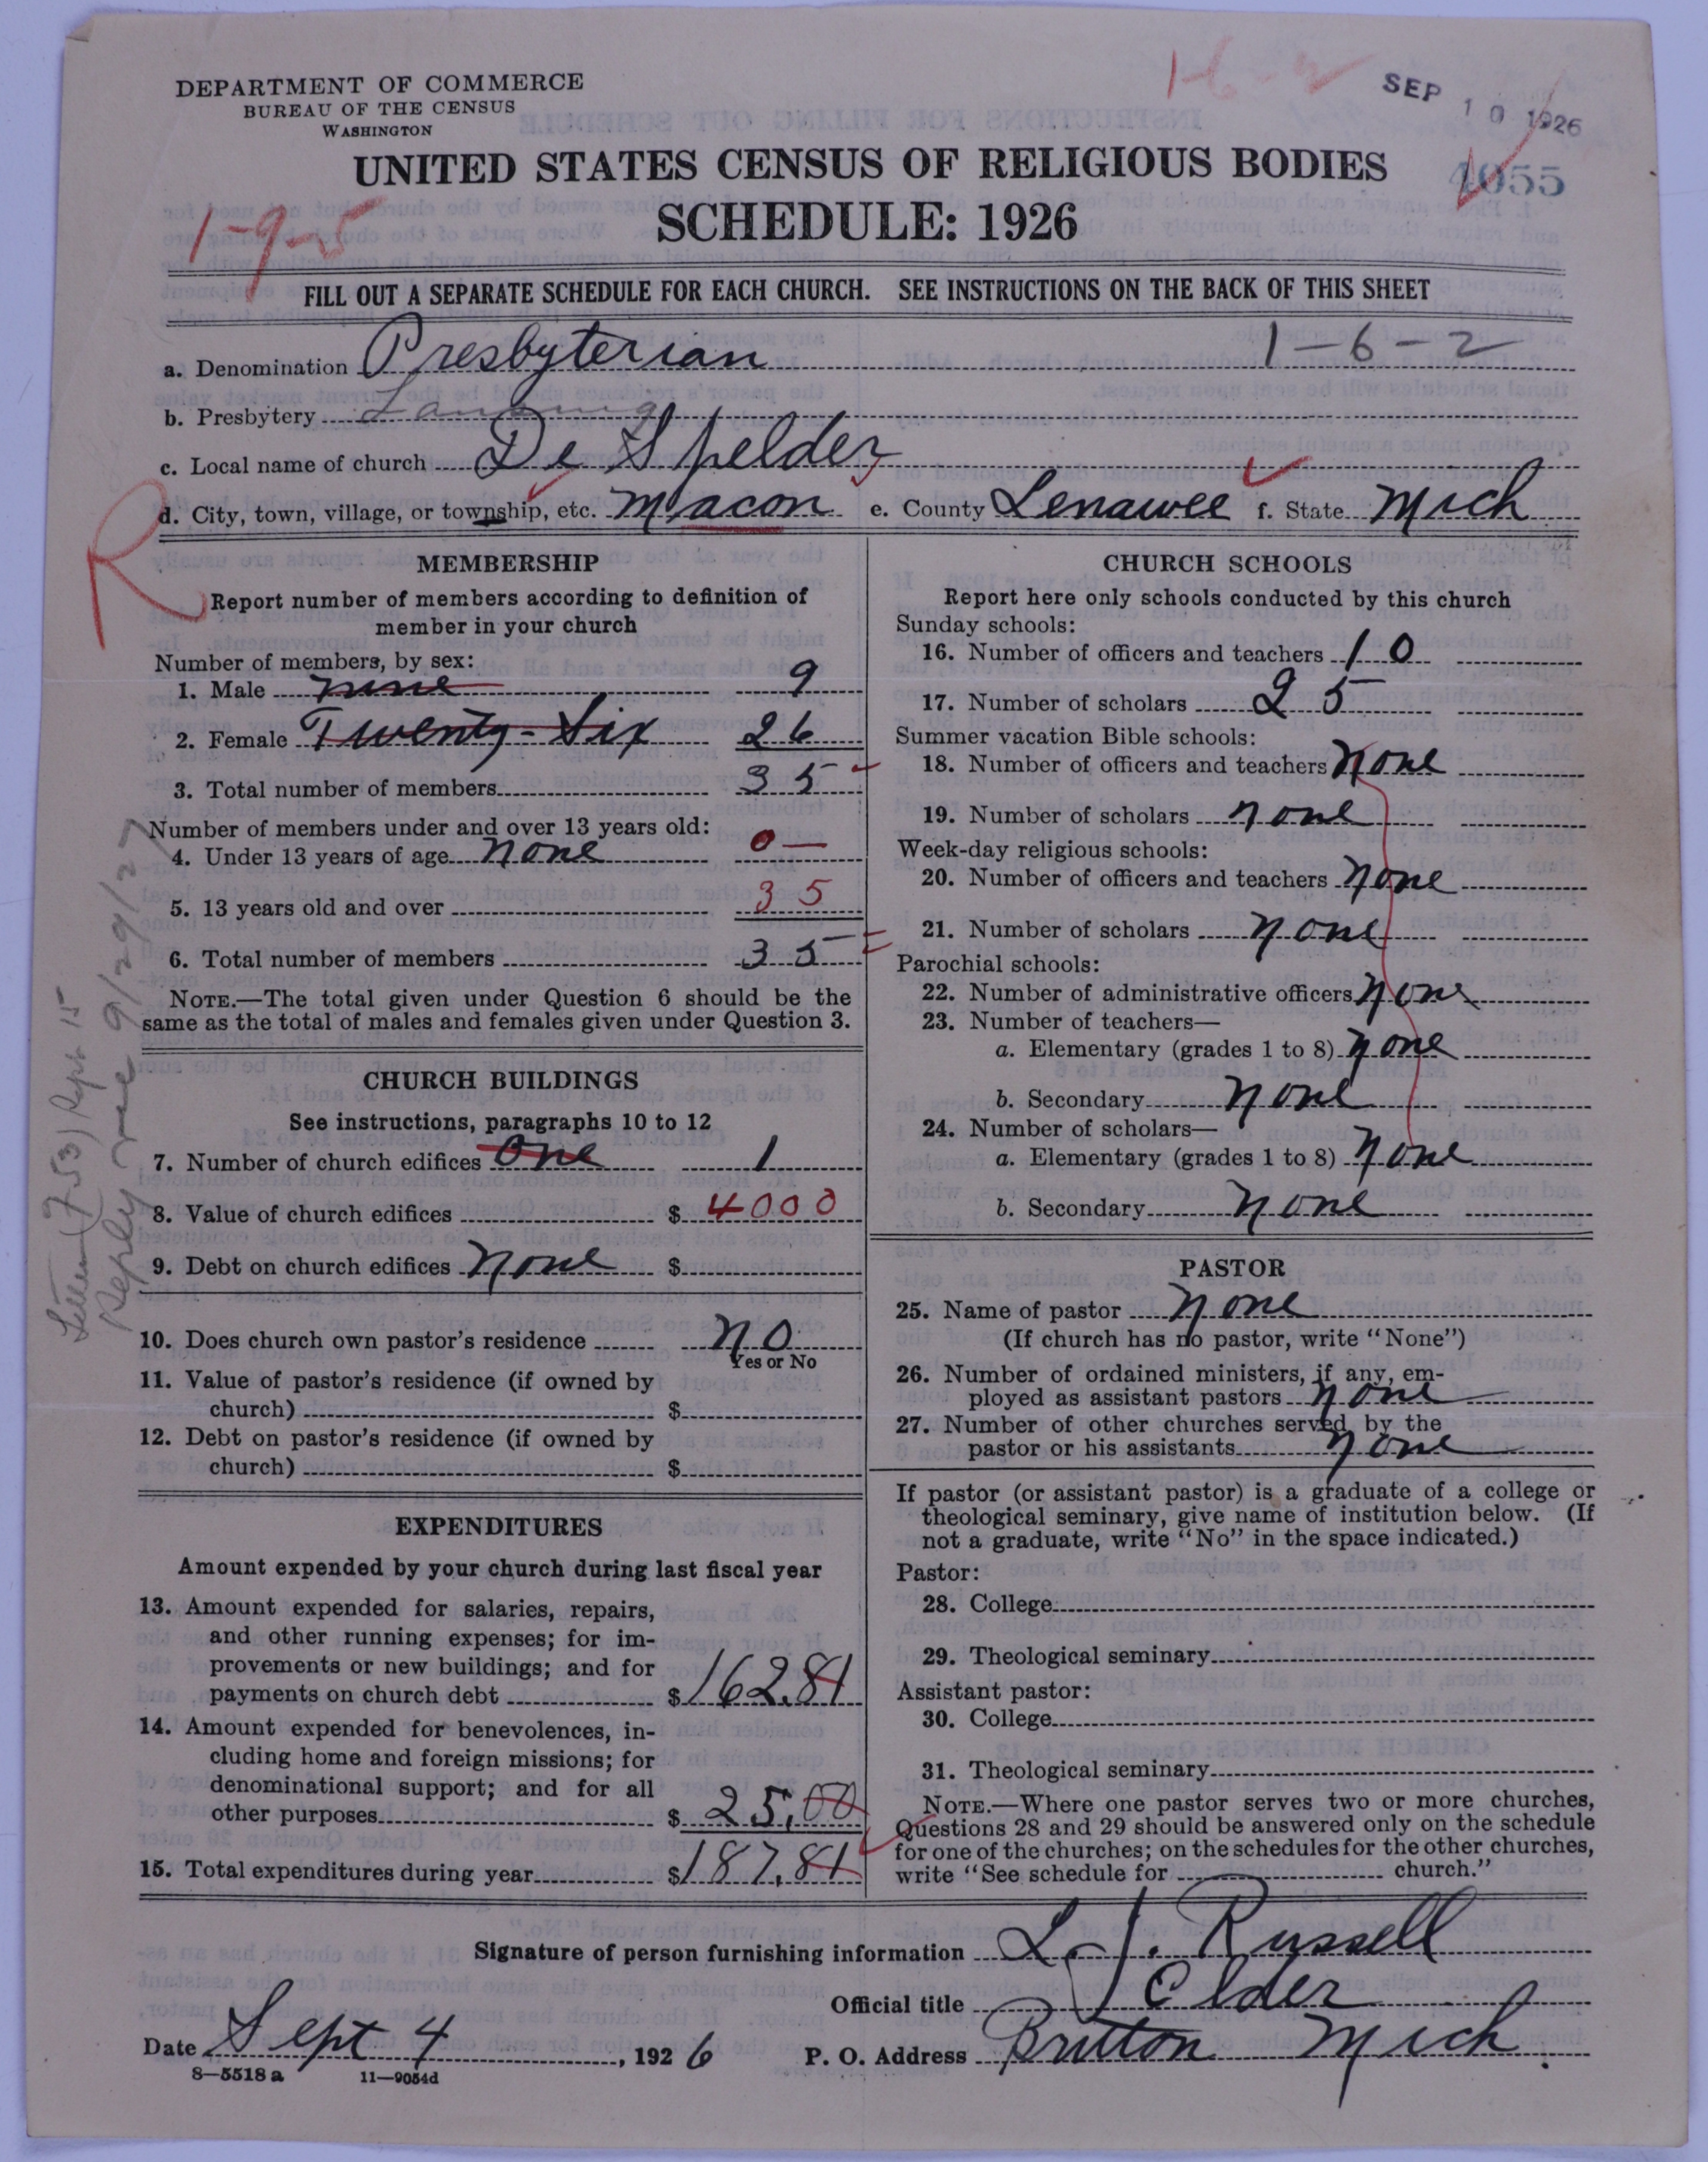 DEPARTMENT OF COMMERCE
BUREAU OF THE CENSUS
WASHINGTON
1-6-2
SEP 10 1926
UNITED STATES CENSUS OF RELIGIOUS BODIES
4055
SCHEDULE: 1926
1-9-5
FILL OUT A SEPARATE SCHEDULE FOR EACH CHURCH. SEE INSTRUCTIONS ON THE BACK OF THIS SHEET
a. Denomination Presbyterian 1-6-2
b. Presbytery Lansing
c. Local name of church De Spelder
d. City, town, village, or township, etc. Macon e. County Lenawee f. State Mich
R
MEMBERSHIP
Report number of members according to definition of
member in your church
Number of members, by sex:
1. Male nine 9
2. Female Twenty-Six 26
3. Total number of members 35
Number of members under and over 13 years old:
4. Under 13 years of age none 0—
5. 13 years old and over 35
6. Total number of members 35
NOTE.—The total given under Question 6 should be the
same as the total of males and females given under Question 3.
CHURCH BUILDINGS
See instructions, paragraphs 10 to 12
7. Number of church edifices one 1
8. Value of church edifices $ 4000
9. Debt on church edifices none $
10. Does church own pastor's residence no
Yes or No
11. Value of pastor's residence (if owned by
church) $
12. Debt on pastor's residence (if owned by
church) $
EXPENDITURES
Amount expended by your church during last fiscal year
13. Amount expended for salaries, repairs,
and other running expenses; for im-
provements or new buildings; and for
payments on church debt $ 162.81
14. Amount expended for benevolences, in-
cluding home and foreign missions; for
denominational support; and for all
other purposes $ 25.00
15. Total expenditures during year $ 187.81
CHURCH SCHOOLS
Report here only schools conducted by this church
Sunday schools:
16. Number of officers and teachers 10
17. Number of scholars 25
Summer vacation Bible schools:
18. Number of officers and teachers none
19. Number of scholars none
Week-day religious schools:
20. Number of officers and teachers none
21. Number of scholars none
Parochial schools:
22. Number of administrative officers none
23. Number of teachers—
a. Elementary (grades 1 to 8) none
b. Secondary none
24. Number of scholars—
a. Elementary (grades 1 to 8) none
b. Secondary none
PASTOR
25. Name of pastor none
(If church has no pastor, write "None")
26. Number of ordained ministers, if any, em-
ployed as assistant pastors none
27. Number of other churches served by the
pastor or his assistants none
If pastor (or assistant pastor) is a graduate of a college or
theological seminary, give name of institution below. (If
not a graduate, write "No" in the space indicated.)
Pastor:
28. College
29. Theological seminary
Assistant pastor:
30. College
31. Theological seminary
NOTE.—Where one pastor serves two or more churches,
Questions 28 and 29 should be answered only on the schedule
for one of the churches; on the schedules for the other churches,
write "See schedule for church."
Signature of person furnishing information L. J. Russell
Official title Elder
Date Sept 4, 1926 P. O. Address Britton Mich.
8—5518 a 11—9054d
Letter (753) Sept 15
Reply 9/29/27